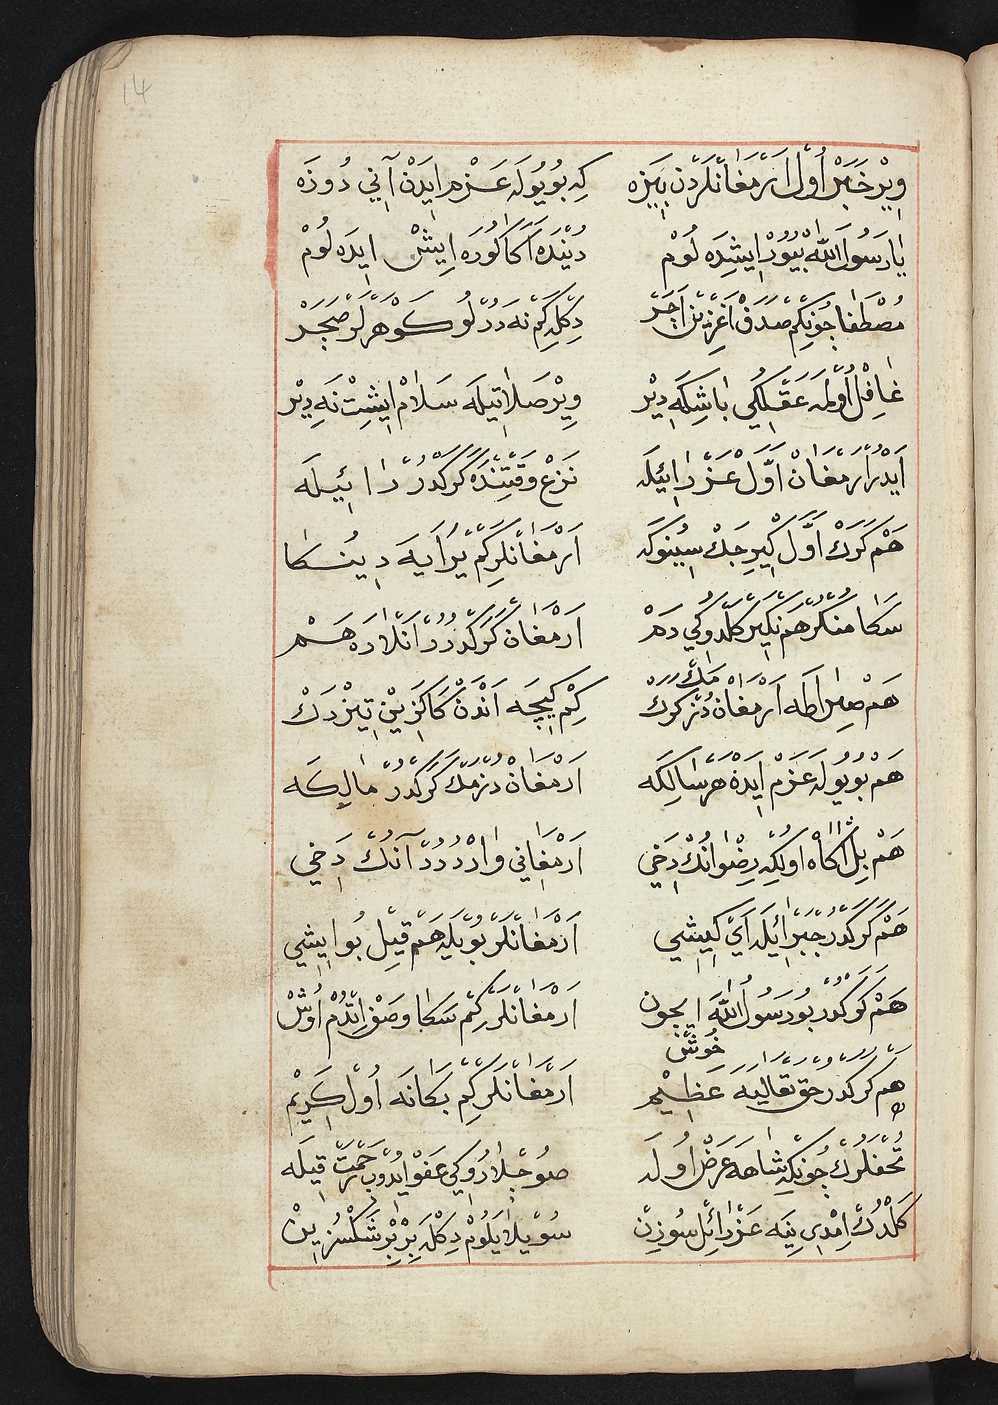 14
ویر خبر اول ارمغانلردن بیزه کە بو یوله عزم ایدن آنی دوزه
یا رسول الله بیور ایشیده لوم دینده آکا کوره ایش ایده لوم
مصطفا چونکم صدف اغزین اچر دکله کم نه درلو کوهرلر صچر
غافل اولمه عقلکی باشکه دیر ویر صلاتیله سلام ایشت نه دیر
ایدر ارمغان اول عزرائیله نزع وقتنده کرکدر رائیله
هم کرك اول کیرجك سینوکه ارمغانلر کم یرایه دینکا
سکا منکر هم نکیر کلدوکی دم ارمغان کرکدرر انلاره هم
هم صراطه ارمغان دزمك کرك کم کیچه اندن کاکزین تیزرك
هم بو یوله عزم ایدن هر سالکه ارمغان دزمك کرکدر مالکه
هم بل اکاه اولکه رضوانك دخی ارمغانی واردرر آنك دخی
هم کرکدر جبرائیله ای کیشی ارمغانلر بویله هم قیل بو ایشی
هم کرکدر بو رسول الله ایچون ارمغانلر کم سکا وصف اتدم اوش
خوش
هم کرکدر حق تعالیه عظیم ارمغانلر کم بکانه اول کریم
تحفلرك چونکه شاهه عرض اوله صوچلاروکی عفو ایدوب رحمت قیله
کلدك امدی ینه عزرائل سوزن سویلایلوم دکله بربر شکسزین